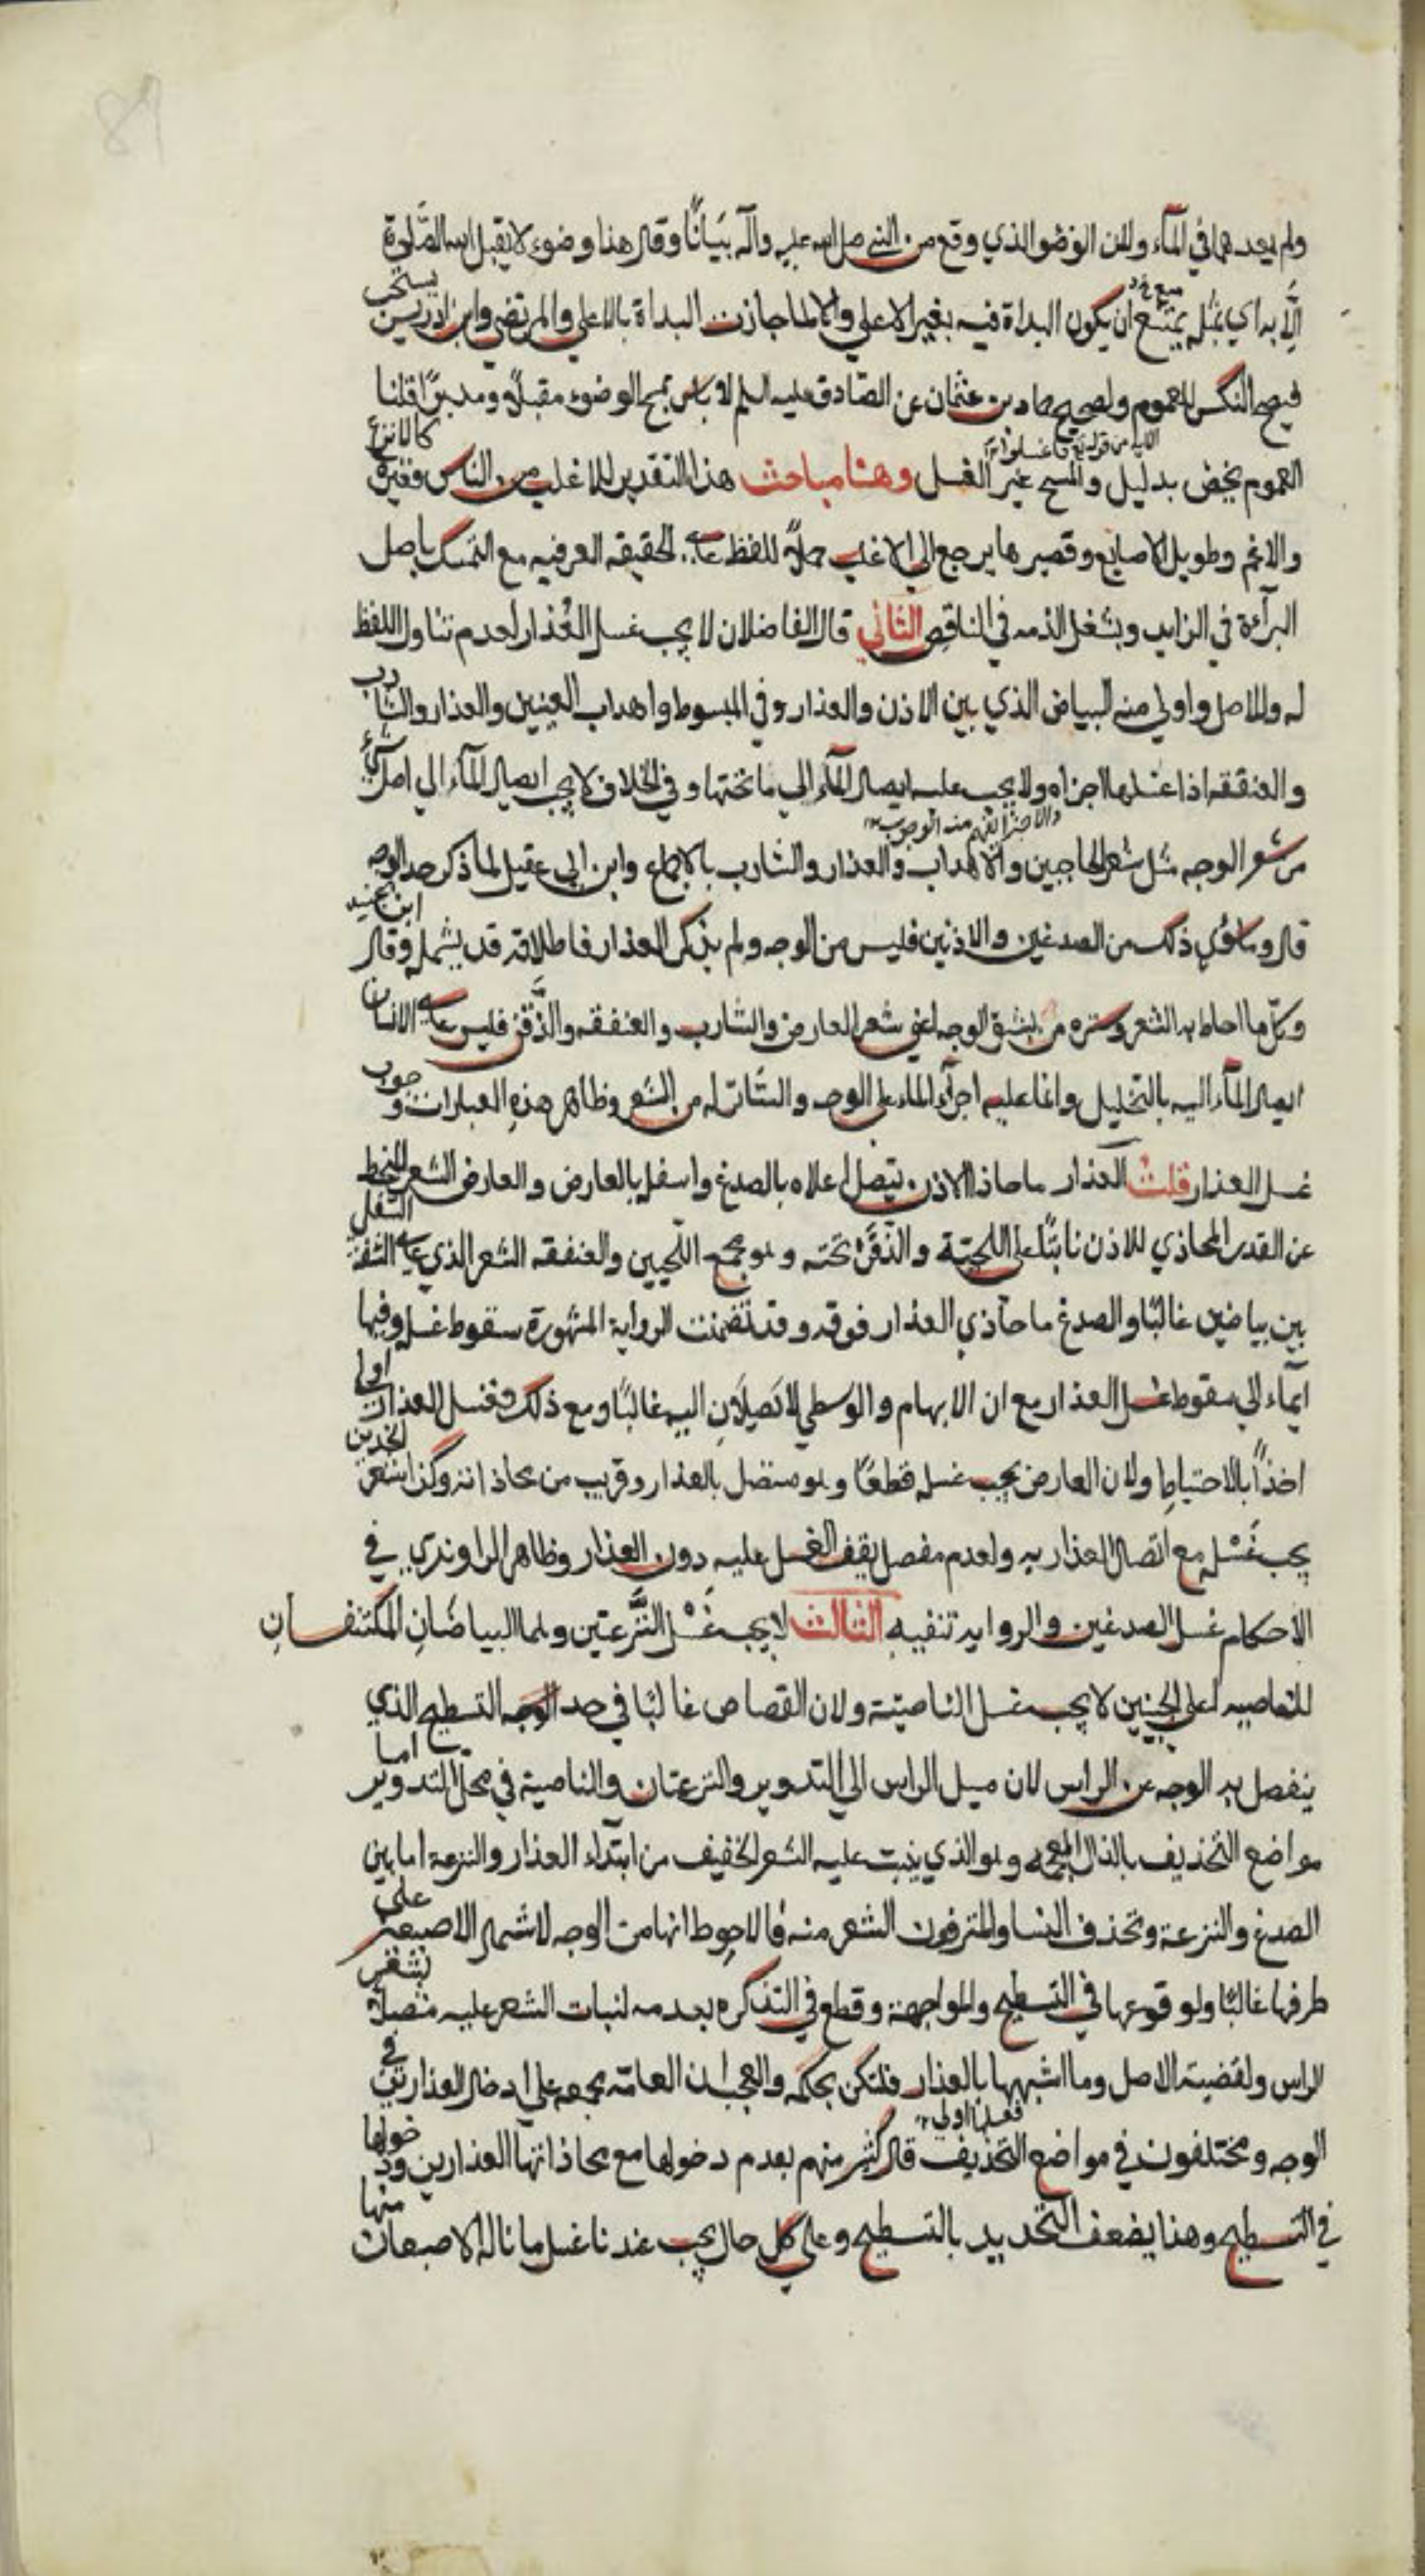 ولم يعدهما في المآء ولان الوضو الذي وقع من النبي صلى الله عليه وآله بيانًا وقال هذا وضوء لا يقبل الله الصلوة
إلّا به اي بمثله يمتنع ان يكون البداة فيه بغير الاعلي والا لما جازت البداة بالاعلي والمرتضي وابن ادريس يستحب
فيصح النكس للعموم ولصحيح حماد بن عثمان عن الصّادق عليه السلم لا باس بمسح الوضوء مقبلًا ومدبرًا قلنا
العموم يخص بدليل والمسح غير الغسل وهنا مباحث هذا التقدير للاغلب من الناس فغيره كالانزع
والاغم وطويل الاصابع وقصيرها يرجع الي الاغلب حملًا للفظ علي الحقيقه العرفيه مع التمسك باصل
البرآءة في الزايد وبشغل الذمه في الناقص الثاني قال الفاضلان لا يجب غسل العُذار لعدم تناول اللفظ
له وللاصل واولي منه البياض الذي بين الاذن والعذار وفي المبسوط واهداب العينين والعذار والشارب
والعنفقه اذا غسلها اجزاه ولا يجب عليه ايصال المآء الي ما تحتها وفي الخلاف لا يجب ايصال المآء الي اصل شيء
من شعر الوجه مثل شعر الحاجبين والاهداب والعذار والشارب بالاجماع وابن ابي عقيل لما ذكر حد الوجه
قال وما سوي ذلك من الصدغين والاذنين فليس من الوجه ولم يذكر العذار فاطلاقه قد يشمله وقال ابن جنيد
وكلّ ما احاط به الشعر وستره من بشرة الوجه اعني شعر العارض والشارب والعنفقه والذَّقن فليس علي الانسان
ايصال المآء اليه بالتخليل وانما عليه اجرآء الماء علي الوجه والسّاتر له من الشعر وظاهر هذه العبارات وجوب
غسل العذار قلت العذار ما حاذا الاذن يتصل اعلاه بالصدغ واسفله بالعارض والعارض الشعر المنحط
عن القدر المحاذي للاذن نابتًا علي اللحيّة والذَّقَن تحته وهو مجمع اللّحيين والعنفقه الشعر الذي علي الشفة السفلي
بين بياضين غالبًا والصدغ ما حاذي العذار فوقه وقد تضمنت الرواية المشهورة سقوط غسله وفيها
ايماء الي سقوط غسل العذار مع ان الابهام والوسطي لا تَصِلانِ اليه غالبًا ومع ذلك فغسل العذار اولي
اخذًا بالاحتياط ولان العارض يجب غسله قطعًا وهو متصل بالعذار وقريب من محاذاته وكذا شعر الخدين
يجب غَسْله مع اتصال العذار به ولعدم مفصل يقف الغسل عليه دون العذار وظاهر الراوندي في
الاحكام غسل الصدغين والرواية تنفيه الثالث لا يجب غَسْل النَّزعتين وهما البياضَانِ المكتنفانِ
للناصيه اعلي الجبينين لا يجب غسل الناصيّة ولان القصاص غالبًا في حد الوجه التسطيح الذي
ينفصل به الوجه عن الراس لان ميل الراس الي التدوير والنزعتان والناصية في محل التدوير اما
مواضع التحذيف بالذال المعجمه وهو الذي ينبت عليه الشعر الخفيف من ابتدآء العذار والنزعة اما بين
الصدغ والنزعة وتحذف النسا والمترفون الشعر منه فالاحوط انها من الوجه لاشتمال الاصبعين علي
طرفها غالبًا ولوقوعها في التسطيح والمواجهة وقطع في التذكره بعدمه لنبات الشعر عليه متصلًا بشعر
الراس ولقضية الاصل وما اشبهها بالعذار فلتكن بحكمه والعجب ان العامّه مجمعه علي ادخال العذارين في
الوجه ومختلفون في مواضع التحذيف قال كثير منهم بعدم دخولها مع محاذاتها العذارين ودخولها
في التسطيح وهذا يضعف التحديد بالتسطيح وعلي كل حال يجب عندنا غسل ما ناله الاصبعان منها